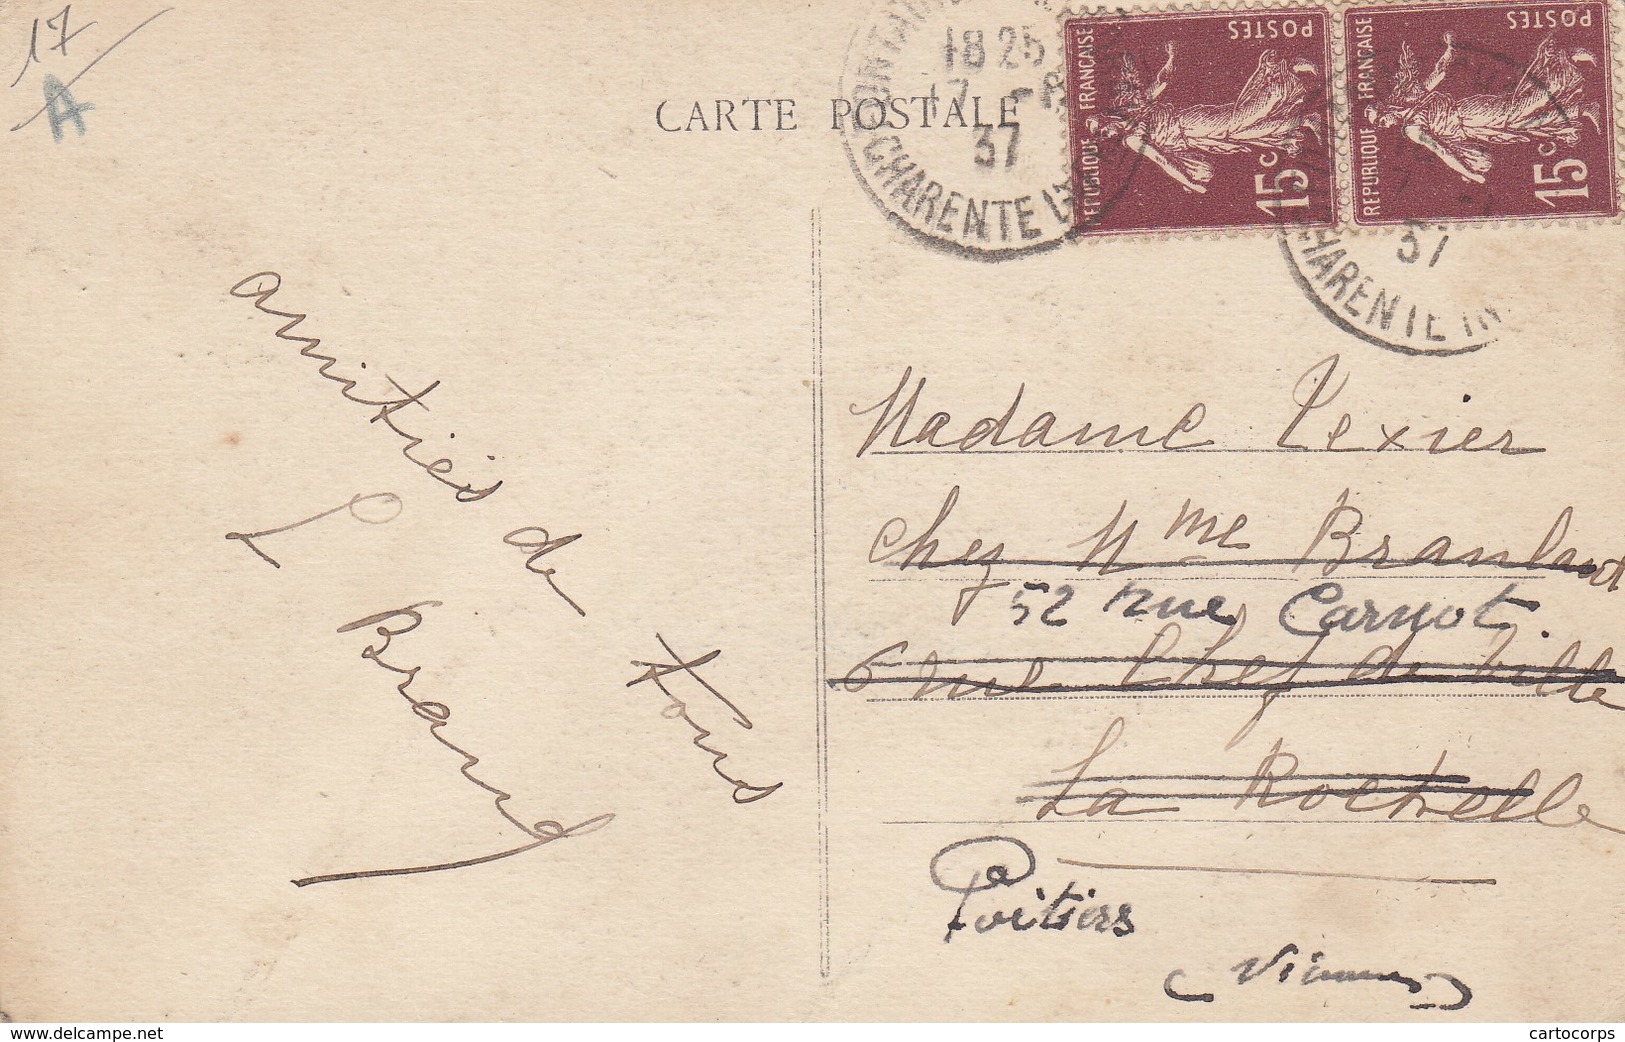 17
A
CARTE POSTALE
18 25
17 -8
37
CHARENTE
REPUBLIQUE FRANÇAISE
POSTES
15c
REPUBLIQUE FRANÇAISE
POSTES
15c
37
CHARENTE IN
amitiés de tous
L Brand
Madame Texier
chez Mme
52 rue Carnot
6 rue Chef de Ville
La Rochelle
Poitiers
(Vienne)
CARTE POSTALE de www.delcampe.net
cartocorps